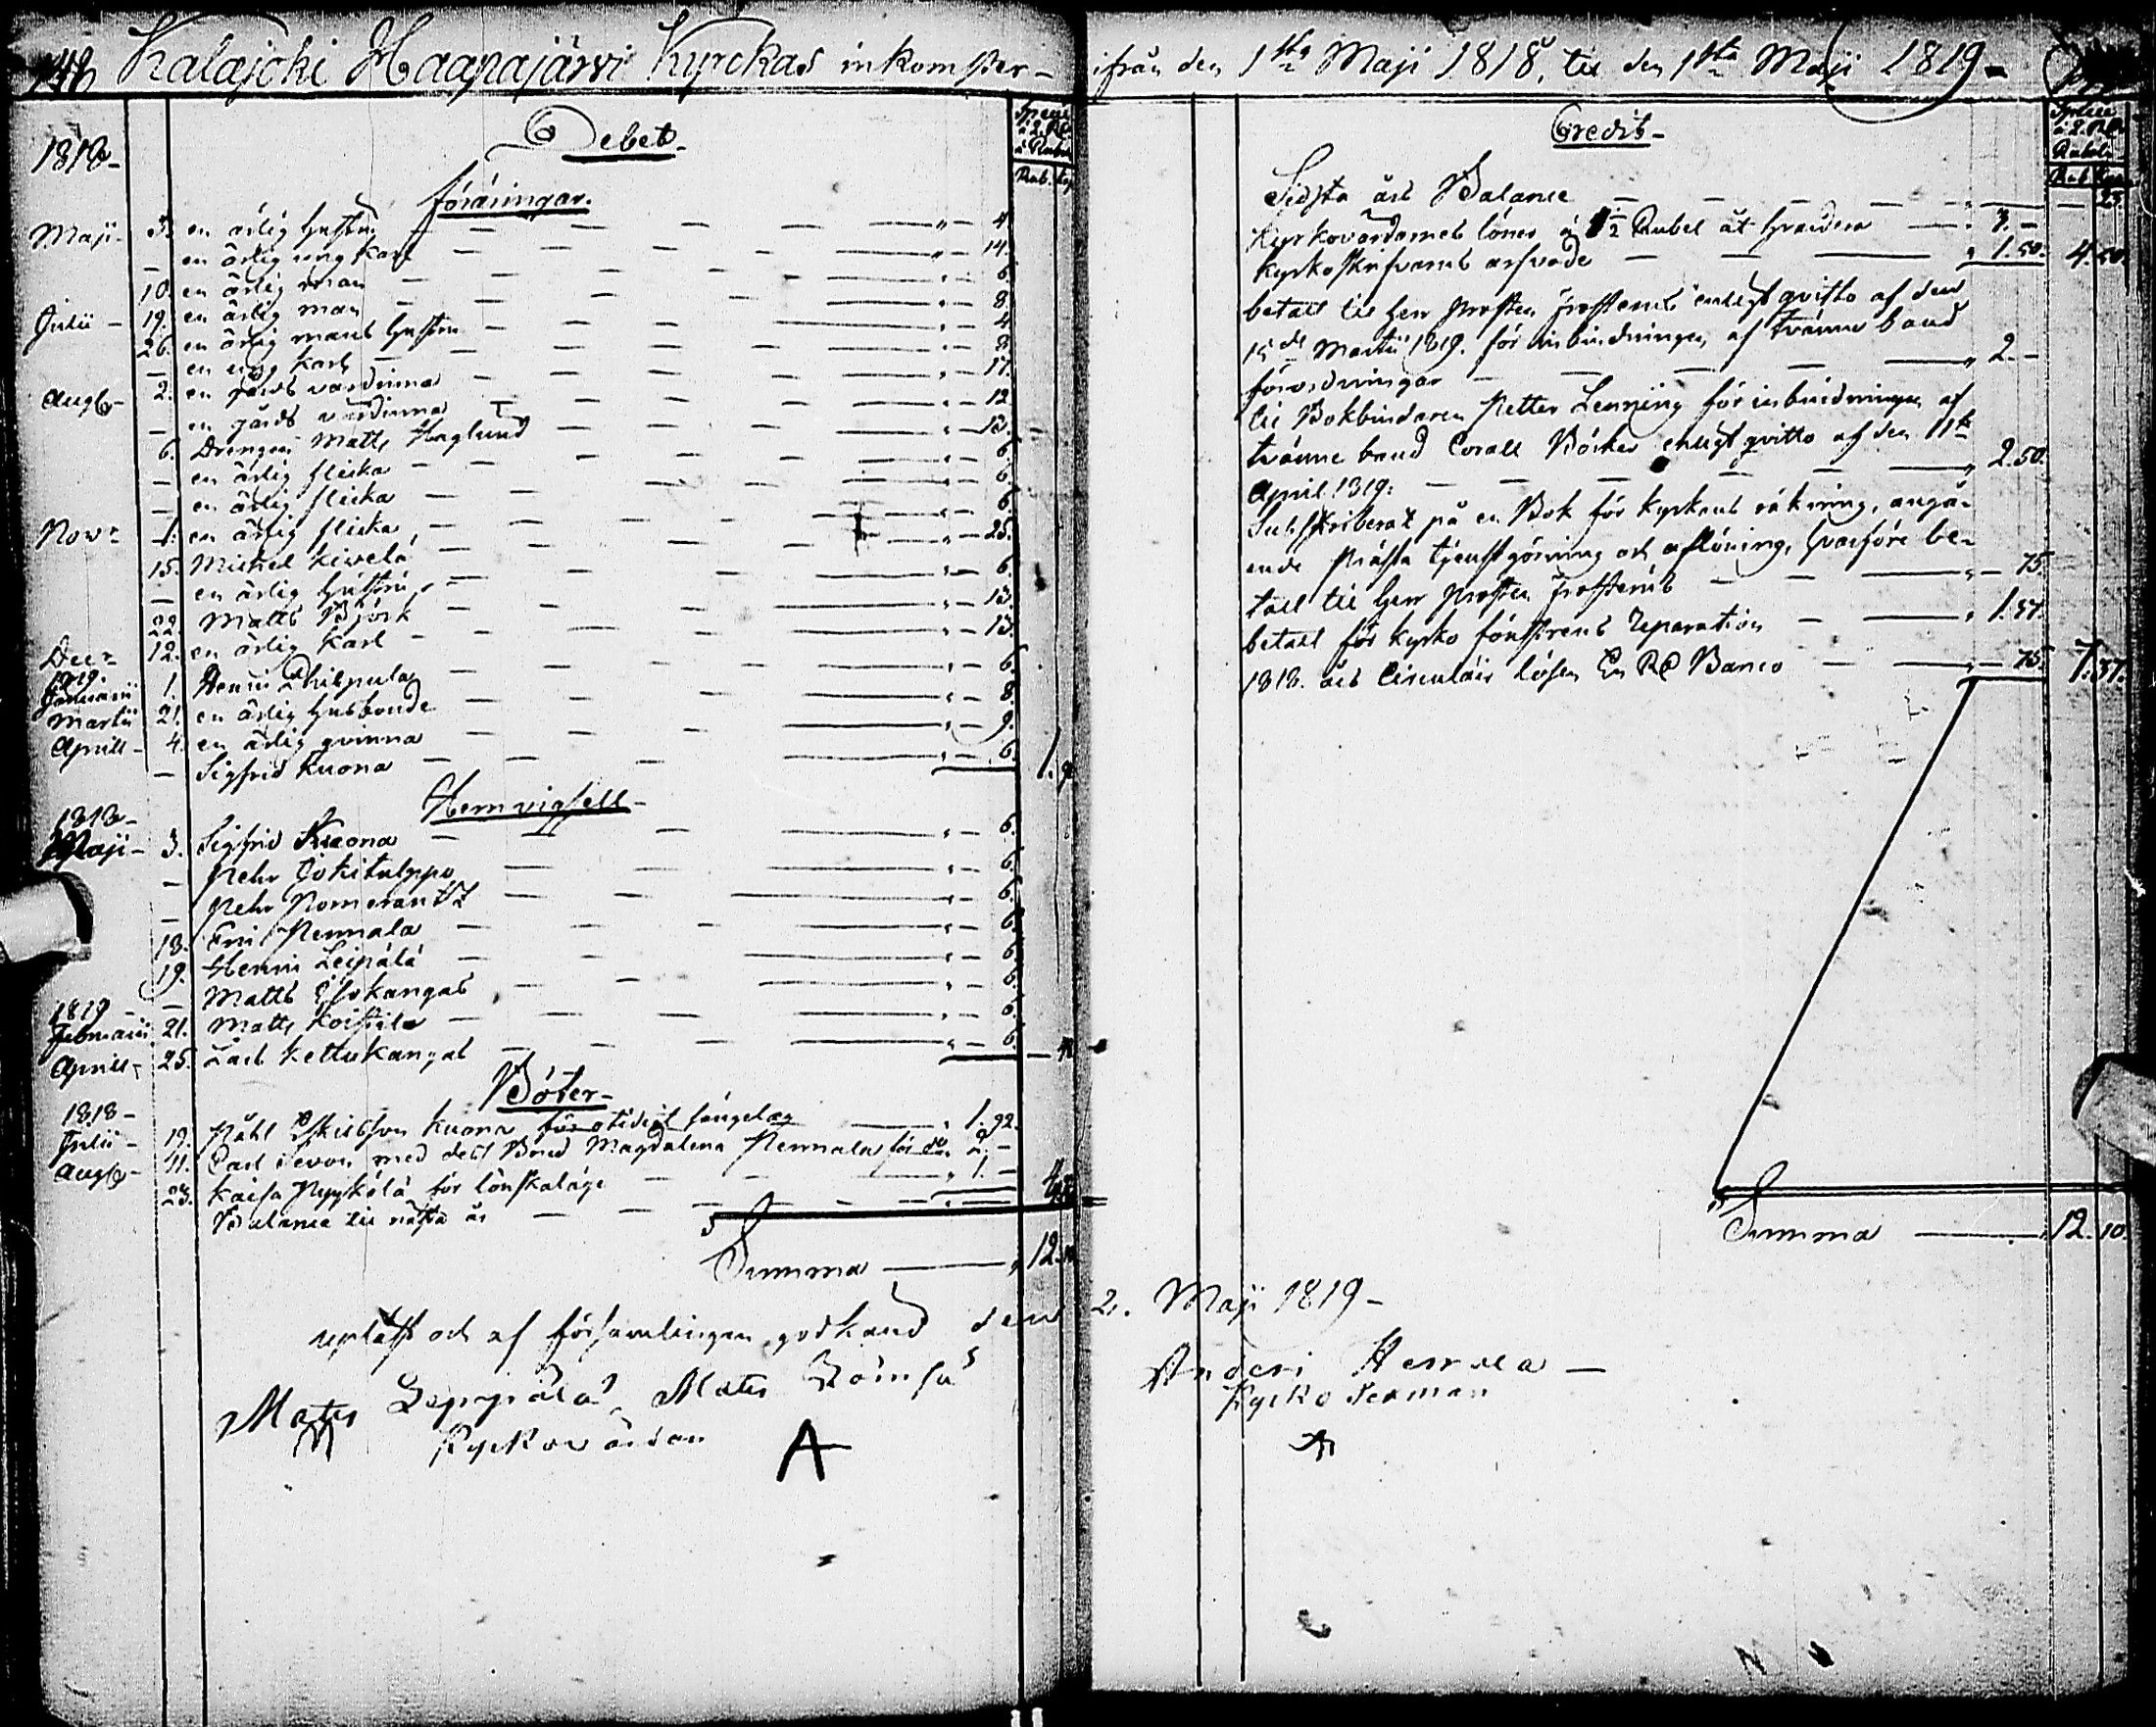 148 Kalajoki Haapajärvi Kyrckas inkomster
Debet
Specie à 2 RD à Rubel
Rub. kop
1818
föräringar.
Maji 3. en ärlig hustru 4
en ärlig ung karl 14.
10. en ärlig man 6
Julii 19. en ärlig man 8
26. en ärlig mans hustru 4
en ung karl 8
Aug 2. en gårds värdinna 17.
en gårds värdinna 12
6. Drengen Matts Haglund 13.
en ärlig flicka 6
en ärlig flicka 6
Nov 1. en ärlig flicka 6
15. Michel Kiwelä 25.
en ärlig hustru 6
22. Matts Björk 13.
Dec 12. en ärlig karl 13.
1819.
Januarii 1. Henric Philpula 6
Martii 21. en ärlig husbonde 8
Aprill 4. en ärlig qvinna 9.
Sigfrid Kuona 6 1.
Hemvigsell
1818
Maji 3. Sigfrid Kuona 6
Pehr Jokitulppo 6
Pehr Pomerantz 6
18. Eric Pennala 6
19. Henric Leipälä 6
Matts Isokangas 6
1819
Februarii 21. Matts Koistila 6
Aprill 25. Lars Kettukangas 6
Böter
1818
Julii 19. Påhl Eskilsson Kuona för otidigt sängelag 1.92.
Aug 11. Carl Sevon med dess Brud Magdalena Pennala för do 2.
23. Kaisa Pyykölä för lönskaläge 1.
Balance til nästa år
Summa 12.10
upläst och af församlingen godkänd den
Matts Leppälä Matts
Kyrkovärdar
A
ifrån den 1sta Maji 1818, til den 1sta Maji 1819
Credit
Specie à 2 RD Rubel
Rub. kop
Sidsta års Balance 23.
Kyrkovärdarnes löner á 1½ Rubel åt hvardera 3.
Kyrkoskrifvarens arfvode 1.50. 4.50.
betalt til Herr Prosten Frosterus enligt qvitto af den
15de Martii 1819. för inbindningen af tvänne band
förordningar 2.
til Bokbindaren Petter Lenning för inbindningen af
tvänne band Corall Böcker enligt qvitto af den 11te
April 1819: 2.50.
Subskriberat på en Bok för kyrkans räkning, angå-
ende Prästa tjenstgörning och aflöning, hvarföre be-
talt til Herr Prosten Frosterus 75.
betalt för kyrko fönstrens Reparation 1.37.
1818. års Circulair lösen En RD Banco 75. 7.37.
Summa 12.10.
2. Maji 1819
Anders
Kyrko Sexman